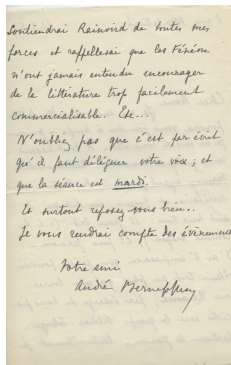 soutiendrai Rainoird de toutes mes
forces et rappellerai que les Fénéon
n'ont jamais entendu encourager
de la littérature trop facilement
commercialisable. Etc...
N'oubliez pas que c'est par écrit
qu'il faut déléguer votre voix ; et
que la séance est mardi.
Et surtout reposez-vous bien.
Je vous rendrai compte des événements
Votre ami
André